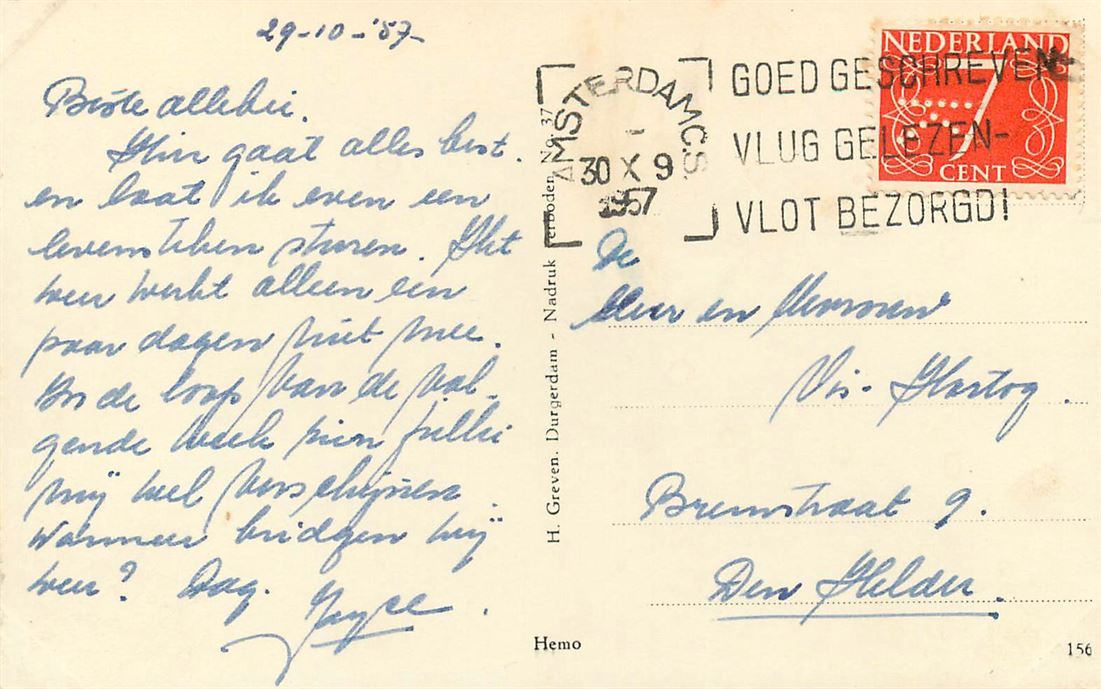 29-10-'57-
Beste allebei.
Hier gaat alles best.
en laat ik even een
levensteken sturen. Het
weer werkt alleen een
paar dagen niet mee.
In de loop van de vol-
gende week zien jullie
mij wel verschijnen.
Wanneer bridgen wij
weer? Dag.
Joyce.
H. Greven. Durgerdam - Nadruk verboden No. 37
Hemo
156
AMSTERDAM C.S.
30 X 9
1957
GOED GESCHREVEN-
VLUG GELEZEN-
VLOT BEZORGD!
NEDERLAND
7
CENT
De
Heer en Mevrouw
Vis-Hartog.
Bremstraat 9.
Den Helder.